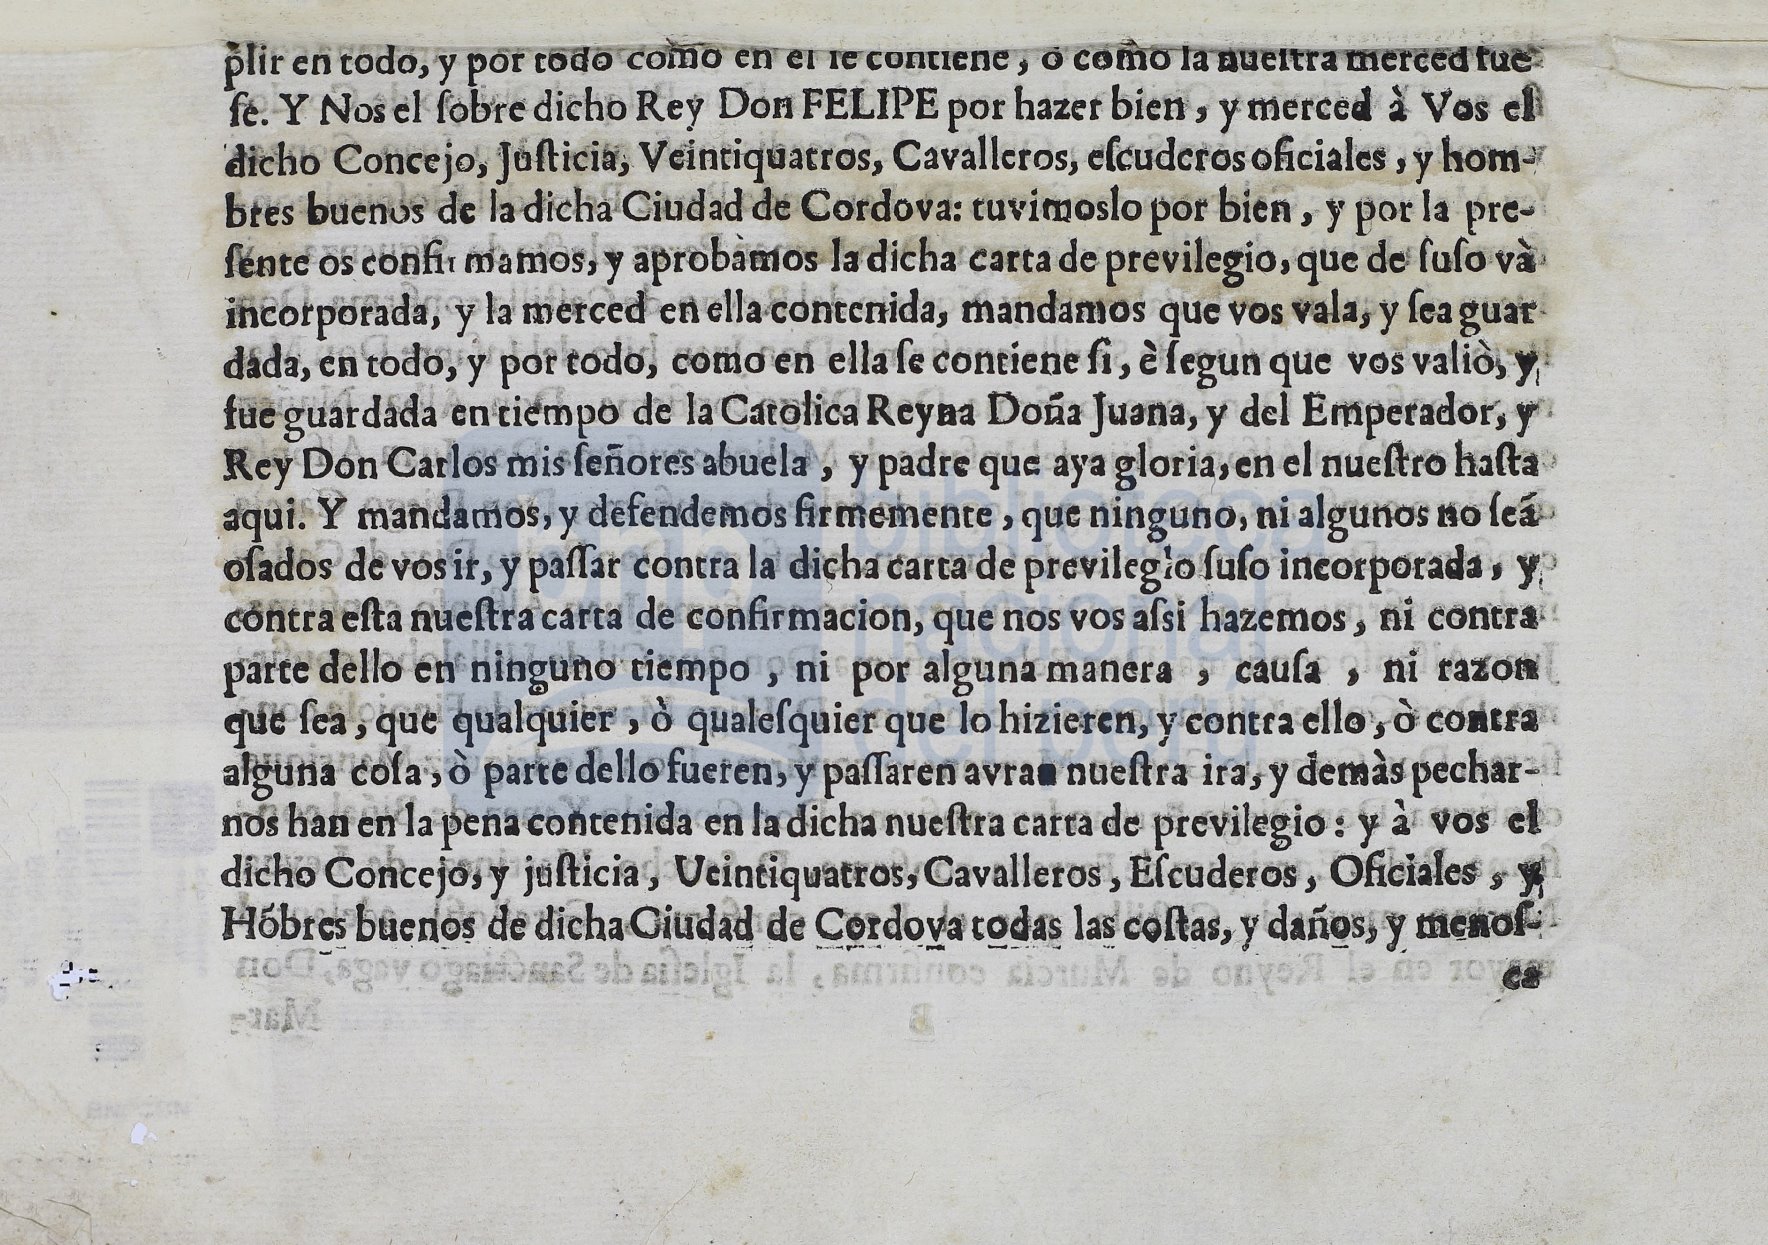 plir en todo, y por todo como en el ſe contiene, ò como la nueſtra merced fue
ſe. Y Nos el ſobre dicho Rey Don FELIPE por hazer bien, y merced à Vos el
dicho Concejo, Juſticia, Veintiquatros, Cavalleros, eſcuderos oficiales, y hom-
bres buenos de la dicha Ciudad de Cordova: tuvimoslo por bien, y por la pre-
ſente os confirmamos, y aprobàmos la dicha carta de previlegio, que de ſuſo và
incorporada, y la merced en ella contenida, mandamos que vos vala, y ſea guar
dada, en todo, y por todo, como en ella ſe contiene ſi, è ſegun que vos valiò, y
fue guardada en tiempo de la Catolica Reyna Doña Juana, y del Emperador, y
Rey Don Carlos mis ſeñores abuela, y padre que aya gloria, en el nueſtro haſta
aqui. Y mandamos, y defendemos firmemente, que ninguno, ni algunos no ſeá
oſados de vos ir, y paſſar contra la dicha carta de previlegio ſuſo incorporada, y
contra eſta nueſtra carta de confirmacion, que nos vos aſsi hazemos, ni contra
parte dello en ninguno tiempo, ni por alguna manera, cauſa, ni razon
que ſea, que qualquier, ò qualeſquier que lo hizieren, y contra ello, ò contra
alguna coſa, ò parte dello fueren, y paſſaren avran nueſtra ira, y demàs pechar-
nos han en la pena contenida en la dicha nueſtra carta de previlegio: y à vos el
dicho Concejo, y juſticia, Ueintiquatros, Cavalleros, Eſcuderos, Oficiales, y
Hóbres buenos de dicha Ciudad de Cordova todas las coſtas, y daños, y menoſ-
ca
biblioteca
nacional
del perú